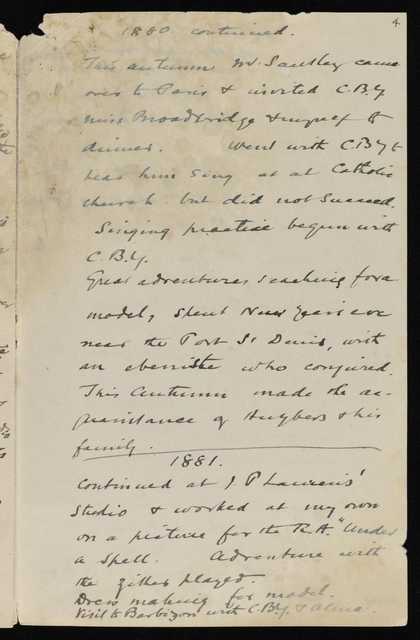 4
1880 continued.
This autumn Mr. Santley came
over to Paris & invited C.B.Y
miss Broadbridge & myself to
dinner. Went with C.B.Y to
hear him sing at a Catholic
church but did not succeed.
Singing practice begun with
C.B.Y.
Great adventures seaching for a
model, spent New Years eve
near the Port St Denis, with
an ebeniste who conjured.
This Autumn made the ac-
quaintance of Huybers & his
family.
1881.
Continued at J. P Laurens'
Studio & worked at my own
on a picture for the R.A. "Under
a Spell. Adventure with
the zither played.
Dress making for model.
Visit to Barbizon with C.B.Y. & Alma.